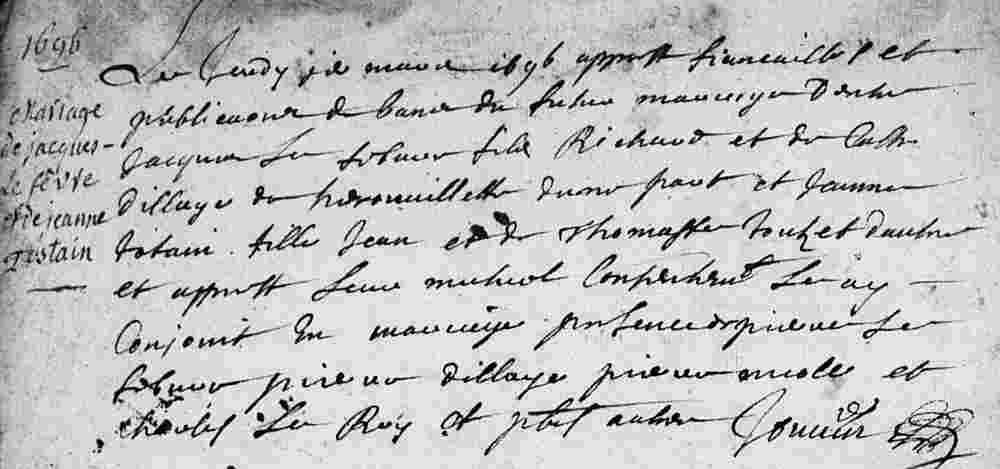 1696
Mariage
de jacques
Le fêvre
et de jeanne
tostain
Le Jeudy je mars 1696 apprest fiancaillest et
publicaons de bans du futur mariage Dentre
Jacques Le febvre fils Richard et de Cath
dillaye de herouvillette dune part et Jeanne
totain fille Jean et de Thomasse touzet dautre
et apprest Leur mutuel Consentemt Le ay
Conjoint En mariage presences pierre Le
febvre pierre dillaye pierre nicolle et
charles Le Roy et plus autres